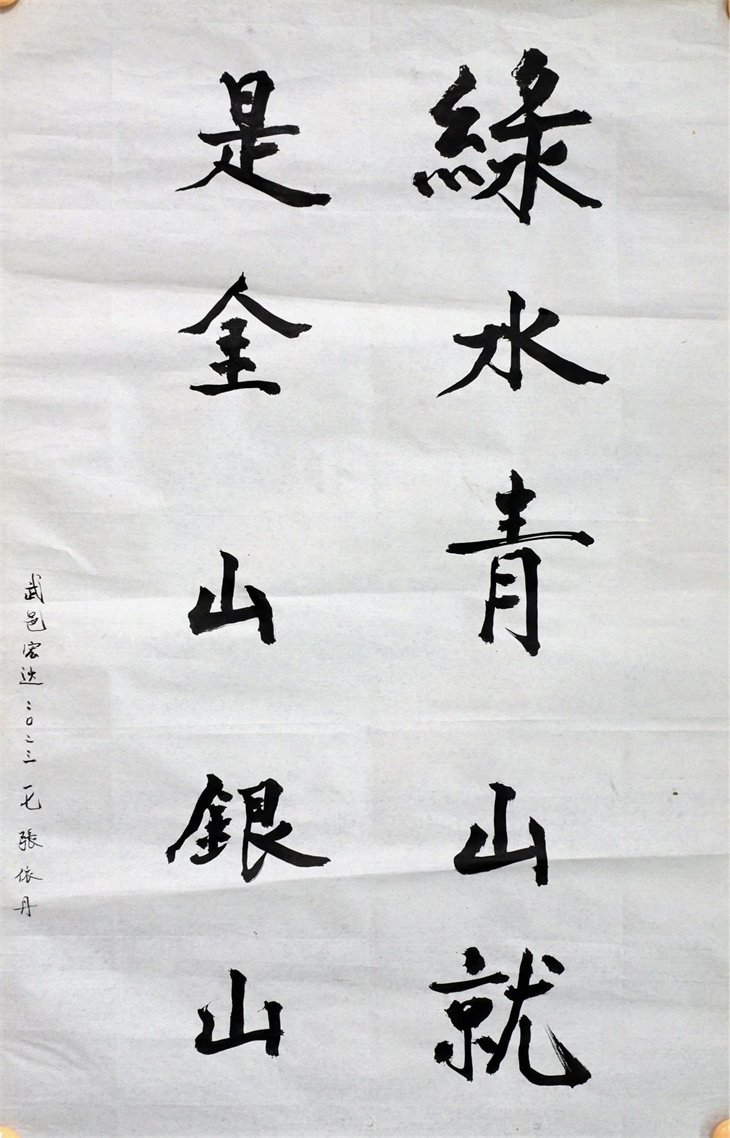 綠水青山就
是金山銀山
武邑宏达二〇二三一七張依丹